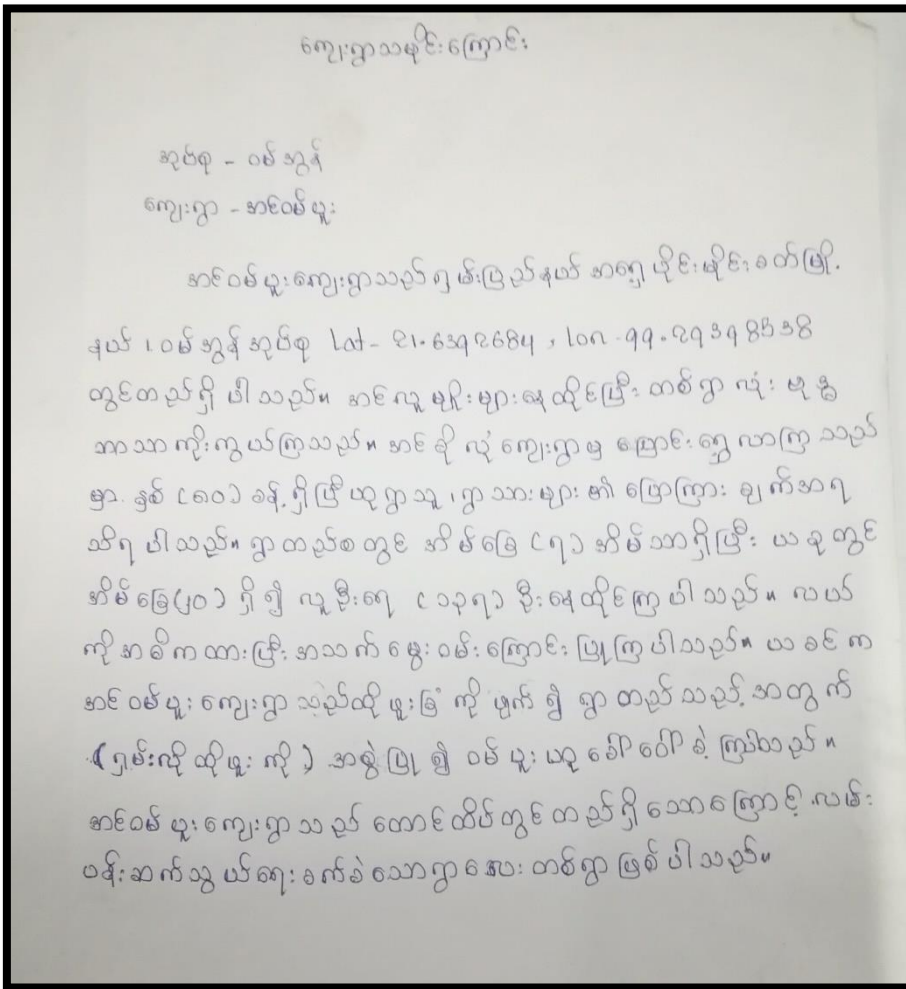 ကျေးရွာသမိုင်းကြောင်း
အုပ်စု - ဝမ်အွန်
ကျေးရွာ - အင်ဝမ်ပူး
အင်ဝမ်ပူးကျေးရွာသည်ရှမ်းပြည်နယ် အရှေ့ပိုင်း မိုင်းခတ်မြို့
နယ် ၊ ဝမ်အွန်အုပ်စု Lat - 21.6392684 , lon - 99.29398538
တွင်တည်ရှိပါသည်။ အင်လူမျိုးများနေထိုင်ပြီး တစ်ရွာလုံး ဗုဒ္ဓ
ဘာသာကိုးကွယ်ကြသည်။ အင်ဒိုလုံကျေးရွာမှ ပြောင်းရွှေ့လာကြသည်
မှာ နှစ် (၈၀) ခန့်ရှိပြီဟုရွာသူ ၊ ရွာသားများ၏ ပြောကြားချက်အရ
သိရပါသည်။ ရွာတည်စတွင် အိမ်ခြေ (၇) အိမ်သာရှိပြီး ယခုတွင်
အိမ်ခြေ(၂၀) ရှိ၍ လူဦးရေ (၁၃၇) ဦးနေထိုင်ကြပါသည်။ လယ်
ကိုအဓိကထားပြီး အသက်မွေးဝမ်းကြောင်းပြုကြပါသည်။ ယခင်က
အင်ဝမ်ပူးကျေးရွာသည်ထိုပူးခြံကိုဖျက်၍ ရွာတည်သည့်အတွက်
(ရှမ်းလိုထိုပူးကို) အစွဲပြု၍ ဝမ်ပူးဟုခေါ်ဝေါ်ခဲ့ကြပါသည်။
အင်ဝမ်ပူးကျေးရွာသည် တောင်ထိပ်တွင်တည်ရှိသောကြောင့် လမ်း
ပန်းဆက်သွယ်ရေးခက်ခဲသောရွာလေးတစ်ရွာဖြစ်ပါသည်။